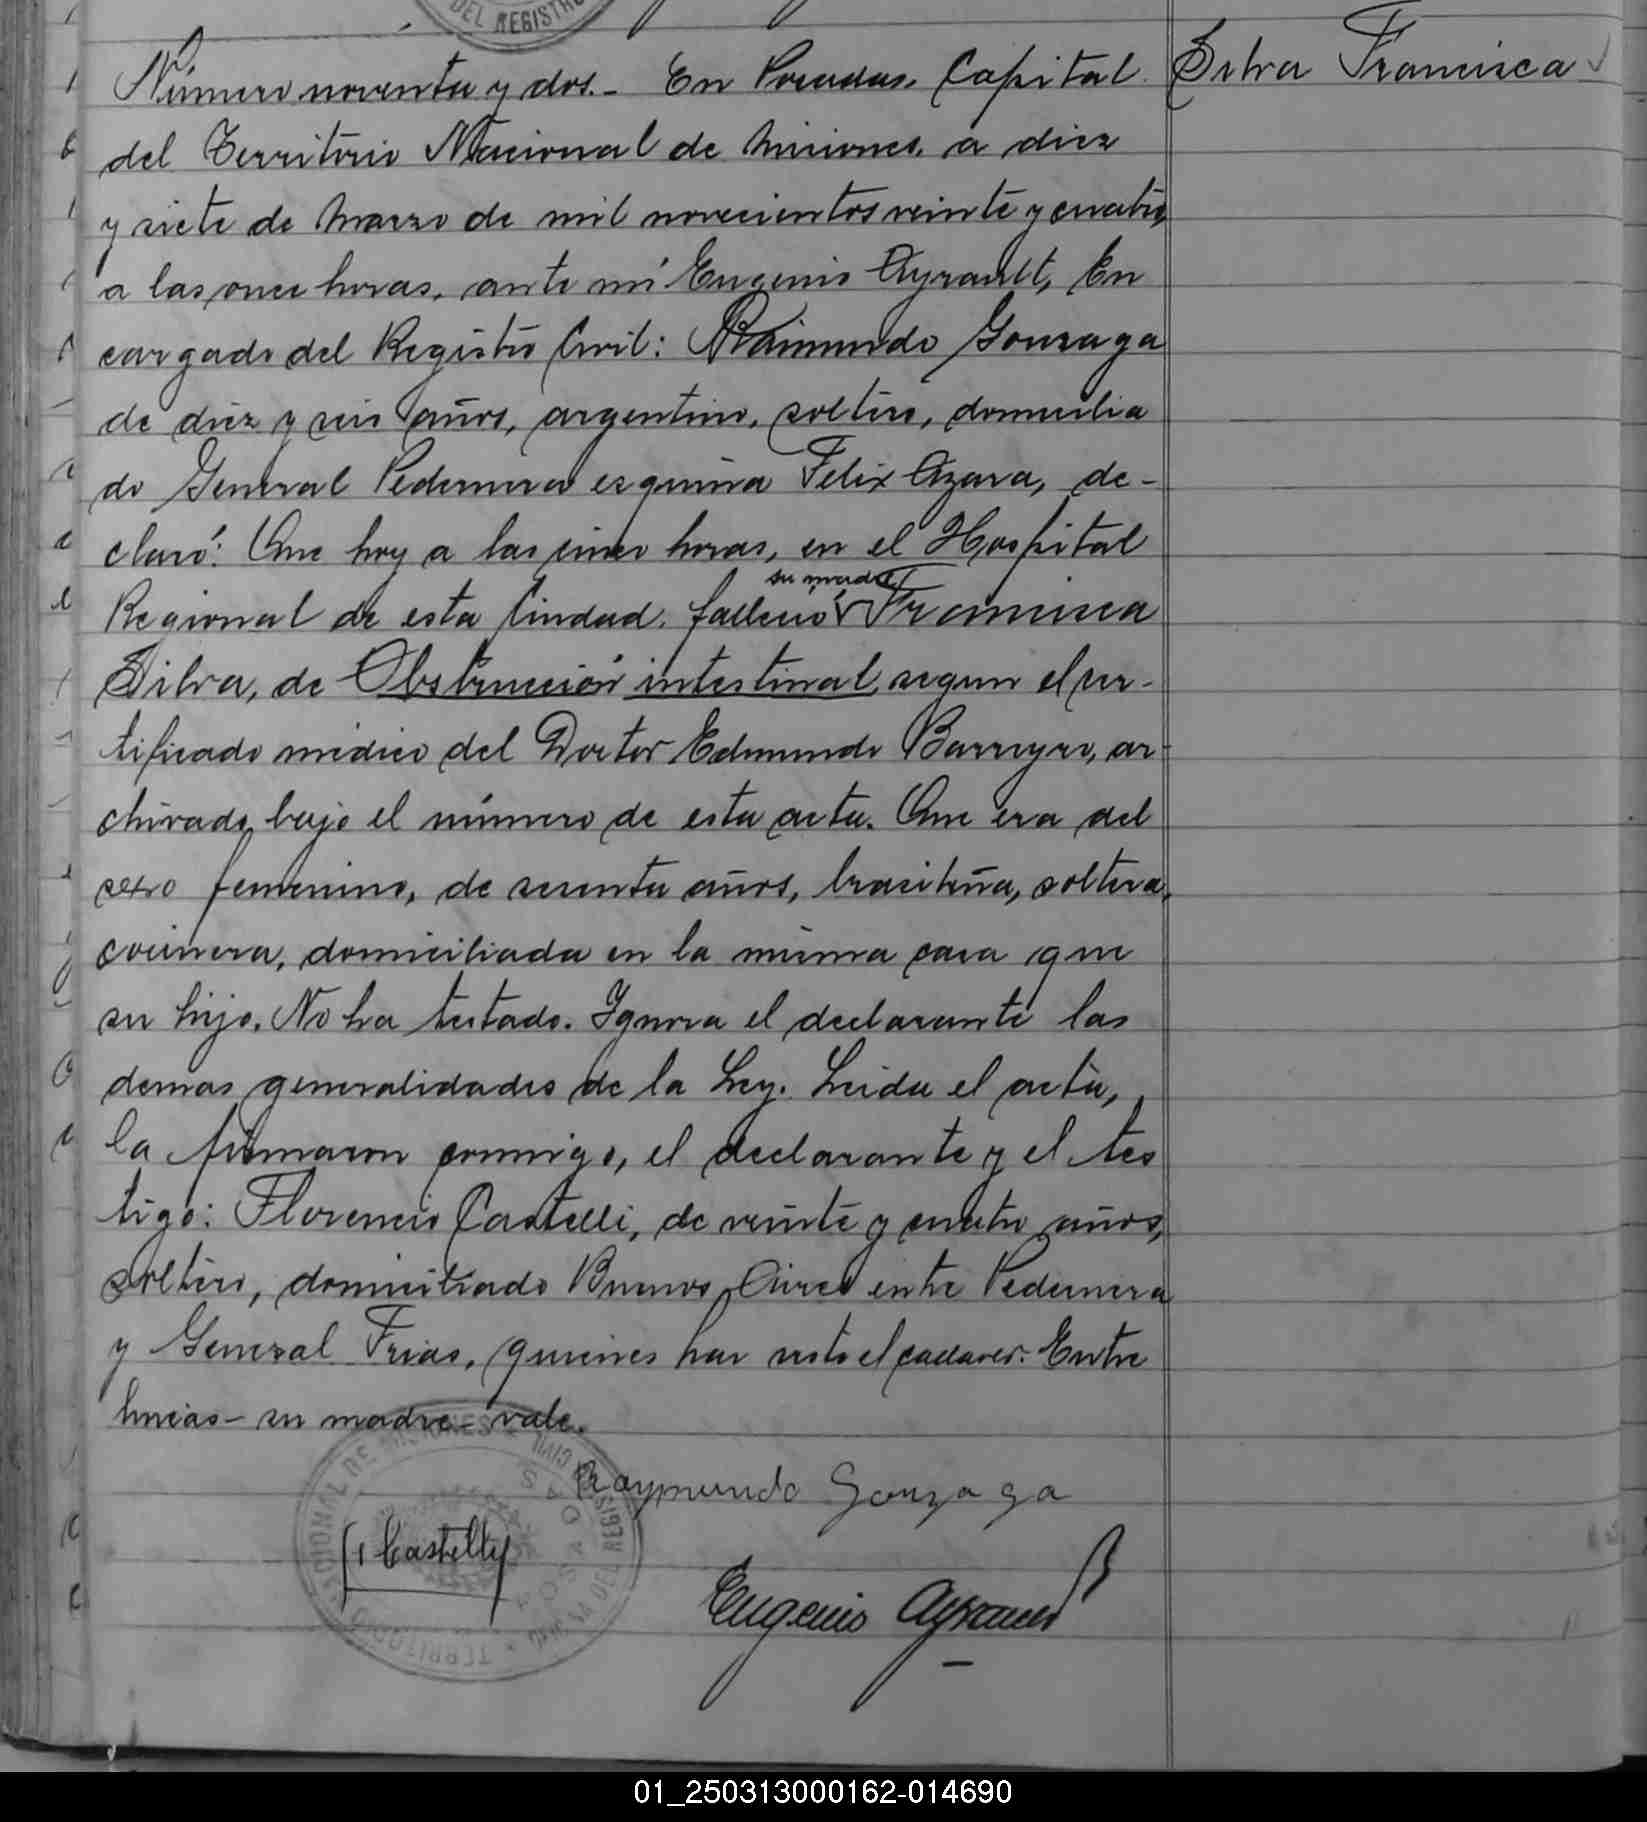 DEL REGISTRO
Número noventa y dos.- En Posadas, Capital
Silva Francisca
del Territorio Nacional de Misiones, a diez
y siete de Marzo de mil novecientos veinte y cuatro,
a las once horas, ante mí Eugenio Ayrault, En
cargado del Registro Civil: Raimundo Gonzaga
de diez y seis años, argentino, soltero, domicilia
do General Pedernera esquina Felix Azara, de-
claró: Que hoy a las cinco horas, en el Hospital
su madre
Regional de esta Ciudad, falleció Francisca
Silva, de Obstrucción intestinal, segun el cer-
tificado médico del Doctor Edmundo Barreyro, ar-
chivado bajo el número de esta acta. Que era del
sexo femenino, de sesenta años, brasileña, soltera,
cocinera, domiciliada en la misma casa que
su hijo. No ha testado. Ignora el declarante las
demas generalidades de la Ley. Leida el acta,
la firmaron conmigo, el declarante y el tes
tigo: Florencio Castelli, de veinte y cuatro años,
soltero, domiciliado Buenos Aires entre Pedernera
y General Frias, quienes han visto el cadaver. Entre
lineas - su madre - vale.
Raymundo Gonzaga
Castelli
Eugenio Ayrault
01_250313000162-014690